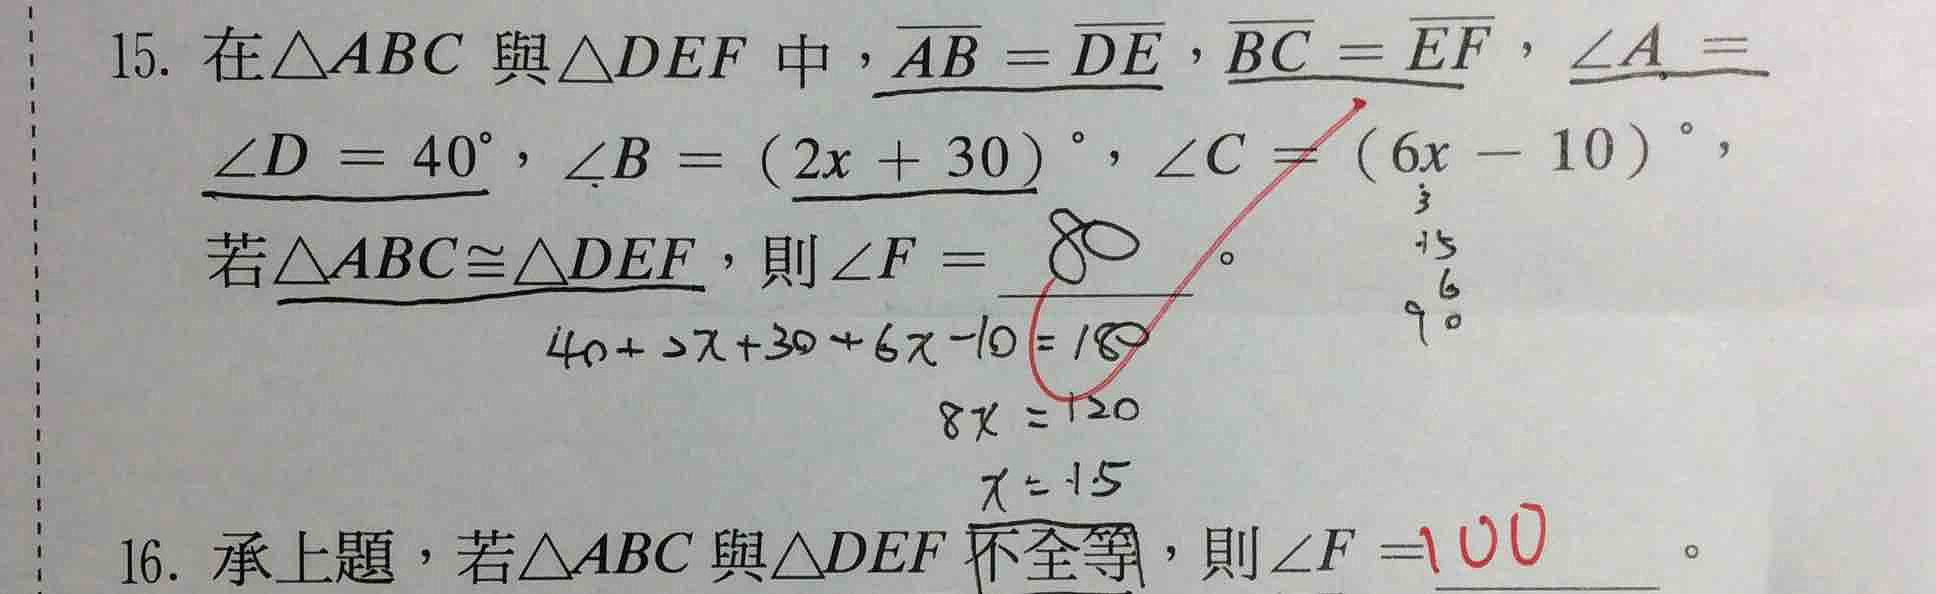 15. 在△ABC 與△DEF 中，AB = DE，BC = EF，∠A =
∠D = 40°，∠B = (2x + 30)°，∠C = (6x − 10)°，
若△ABC≅△DEF，則∠F = 80。
3
15
6
90
40+2x+30+6x-10=180
8x=120
x=15
16. 承上題，若△ABC 與△DEF 不全等，則∠F =100。